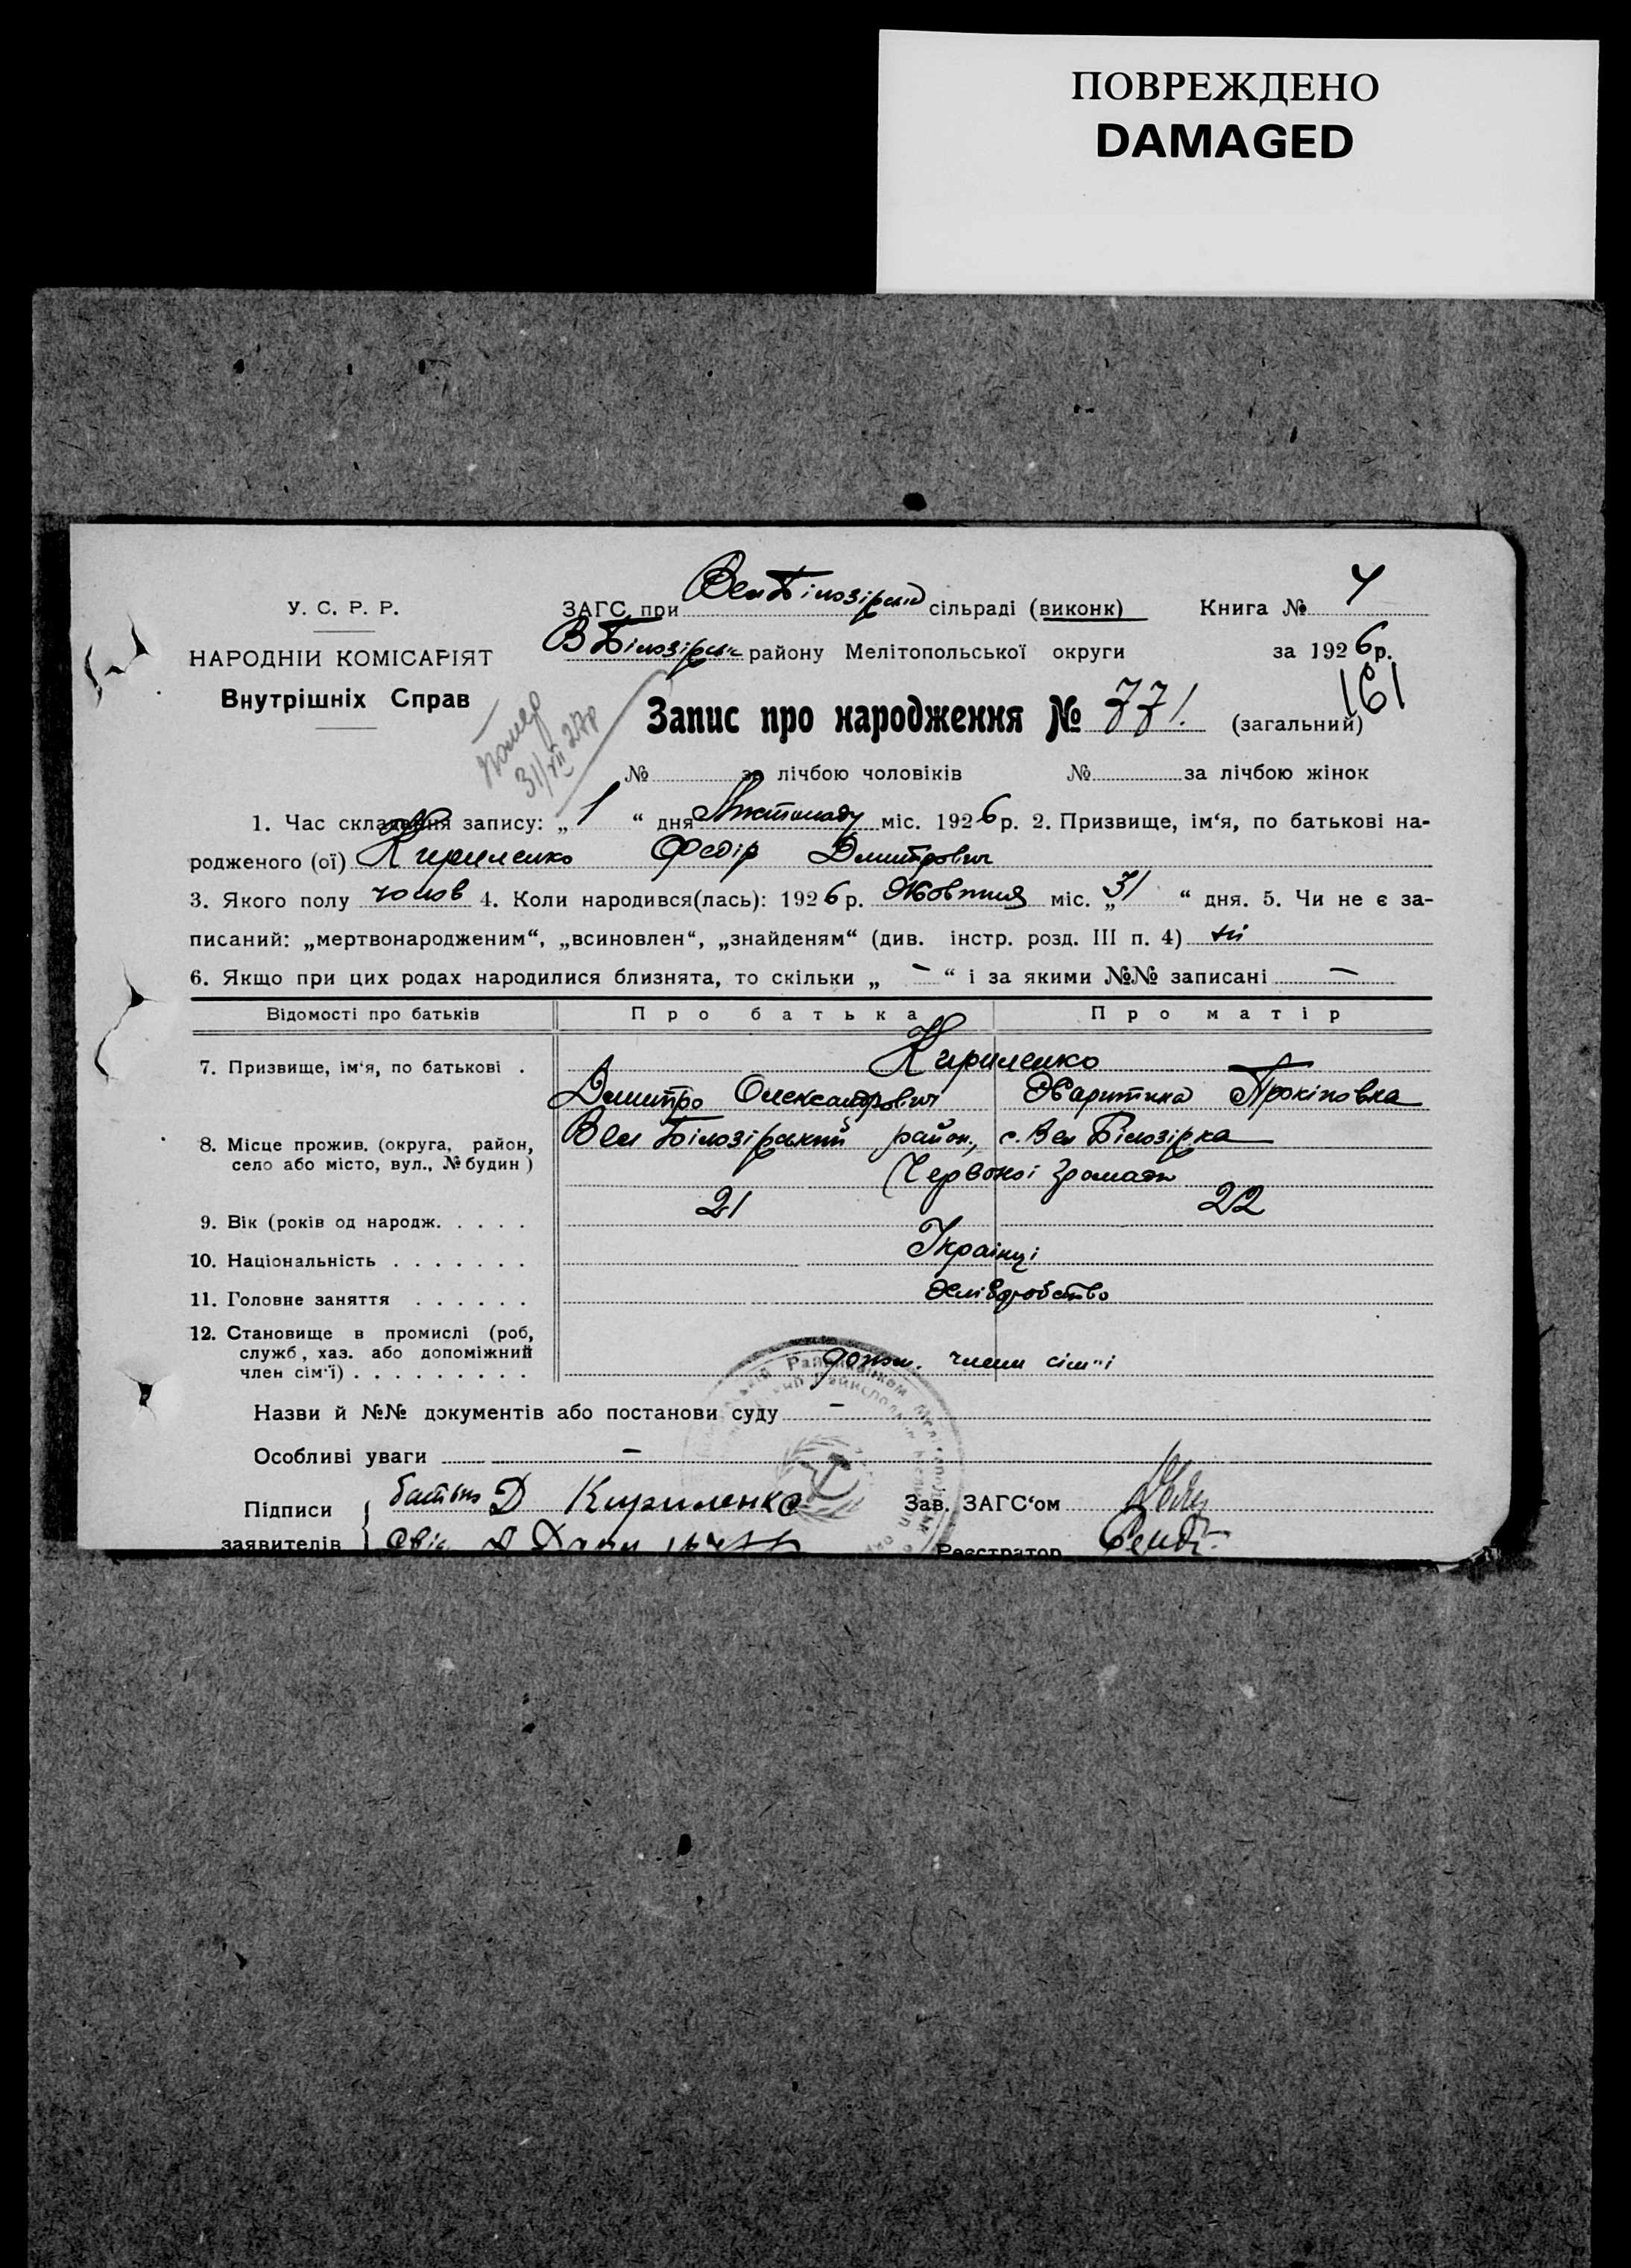 ПОВРЕЖДЕНО
DAMAGED
У. С. Р. Р.
НАРОДНІЙ КОМІСАРІЯТ
Внутрішніх Справ
ЗАГС при ВелБілозірськ сільраді (виконк) Книга №
В Білозірськ району Мелітопольської округи за 1926 р.
161
помер
31/XII 27р
Запис про народження № 771. (загальний)
№ за лічбою чоловіків № за лічбою жінок
1. Час складення запису: „ 1 “ дня Листопаду міс. 1926 р. 2. Призвище, ім‘я, по батькові на-
родженого (ої) Кириленко Федір Дмитрович
3. Якого полу чолов 4. Коли народився(лась): 1926 р. Жовтня міс. „ 31 “ дня. 5. Чи не є за-
писаний: „мертвонародженим“, „всиновлен“, „знайденям“ (див. інстр. розд. III п. 4) ні
6. Якщо при цих родах народилися близнята, то скільки „ — “ і за якими №№ записані —
Відомості про батьків Про батька Про матір
7. Призвище, ім‘я, по батькові . Кириленко
Дмитро Олександрович Харитина Прокіповна
8. Місце прожив. (округа, район, село або місто, вул., № будин) Вел Білозірський район., с. Вел Білозірка
Червоної Громади
9. Вік (років од народж. . . . . 21 22
10. Національність . . . . . . . Українці
11. Головне заняття . . . . . . Хліборобство
12. Становище в промислі (роб,
служб, хаз. або допоміжний
член сім‘ї) . . . . . . . . . допом. члени сім'ї
Назви й №№ документів або постанови суду —
Особливі уваги —
Підписи батько Д Кириленко Зав. ЗАГС‘ом
заявителів Реєстратор